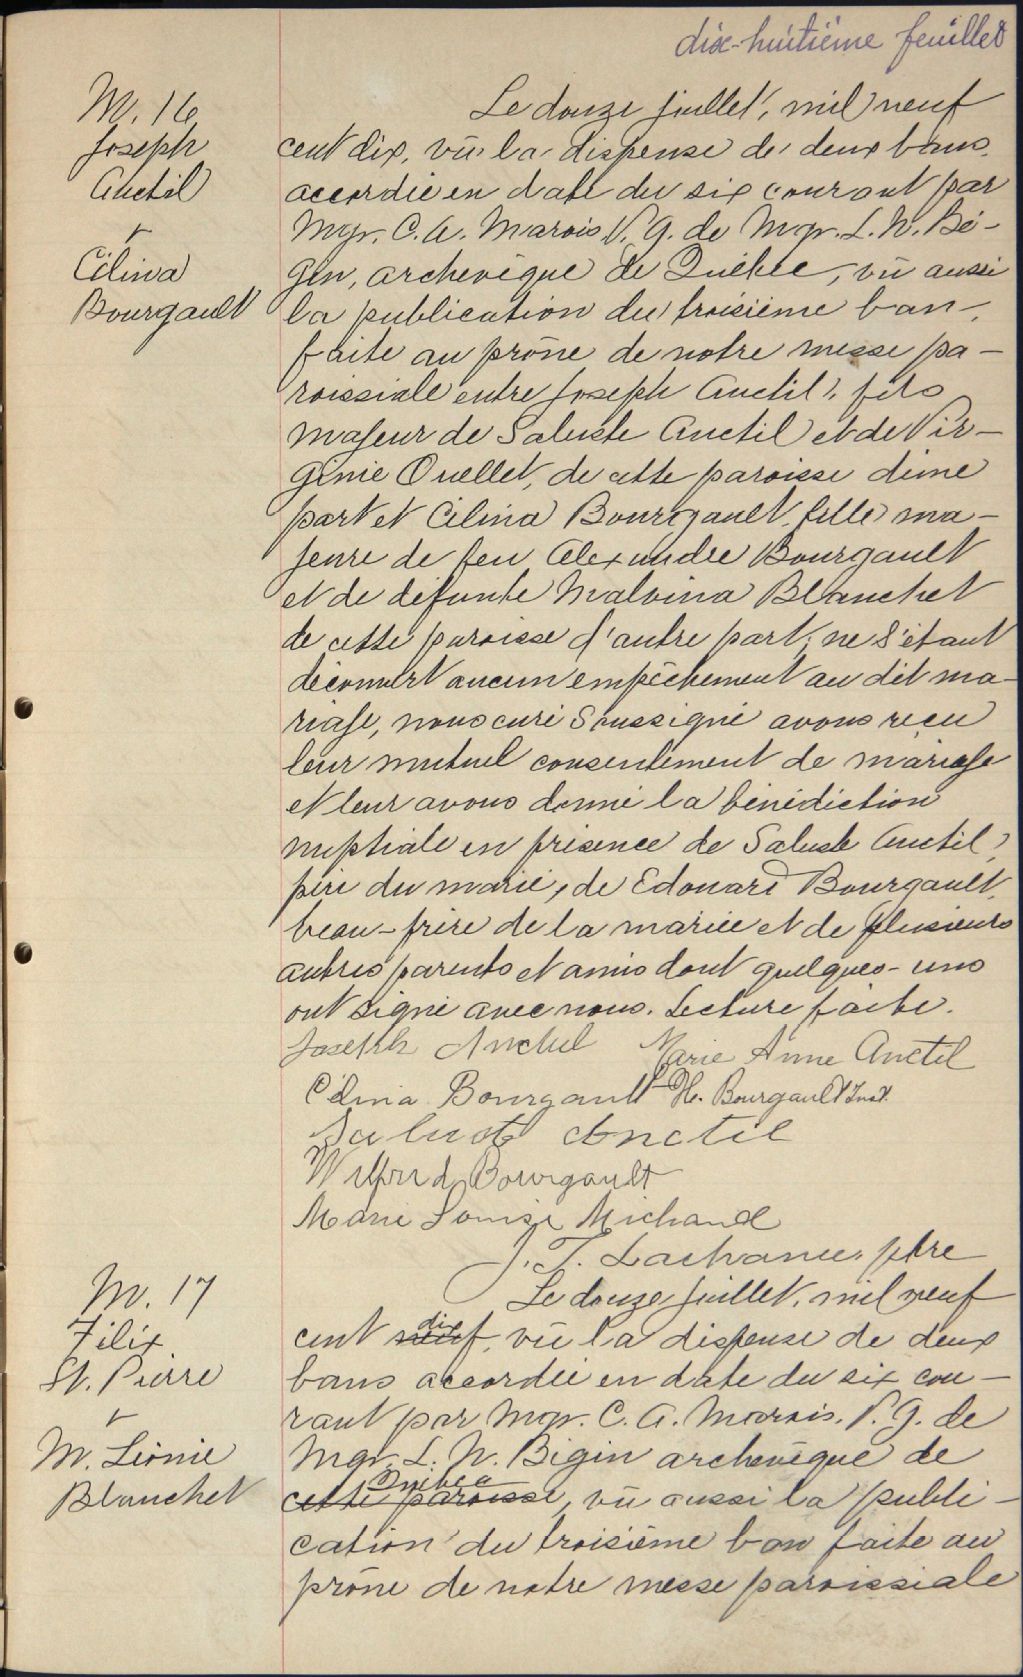 dix-huitième feuillet
M. 16
Joseph
Anctil
+
Célina
Bourgault
Le douze juillet, mil neuf
cent dix, vû la dispense de deux bans
accordée en date du six courant par
Mgr. C. A. Marois V. G. de Mgr. L. N. Bé-
gin, archevêque de Québec, vû aussi
la publication du troisième ban
faite au prône de notre messe pa-
roissiale entre Joseph Anctil, fils
majeur de Saluste Anctil et de Vir-
ginie Ouellet, de cette paroisse d'une
part et Célina Bourgault, fille ma-
jeure de feu Alexandre Bourgault
et de défunte Malvina Blanchet
de cette paroisse d'autre part; ne s'étant
découvert aucun empêchement au dit ma-
riage, nous curé soussigné avons reçu
leur mutuel consentement de mariage
et leur avons donné la bénédiction
nuptiale en présence de Saluste Anctil,
père du marié, de Edouard Bourgault,
beau-frère de la mariée et de plusieurs
autres parents et amis dont quelques-uns
ont signé avec nous. Lecture faite.
Joseph Anctil Marie Anne Anctil
Célina Bourgault H. Bourgault Inst.
Saluste Anctil
Wilfrid Bourgault
Marie Louise Michaud
J. T. Lachance, ptre
M. 17
Félix
St. Pierre
+
M. Léonie
Blanchet
Le douze juillet, mil neuf
cent neuf dix, vû la dispense de deux
bans accordée en date du six cou-
rant par Mgr. C. A. Marois, V. G. de
Mgr. L. N. Bégin archevêque de
cette paroisse Québec, vû aussi la publi-
cation du troisième ban faite au
prône de notre messe paroissiale